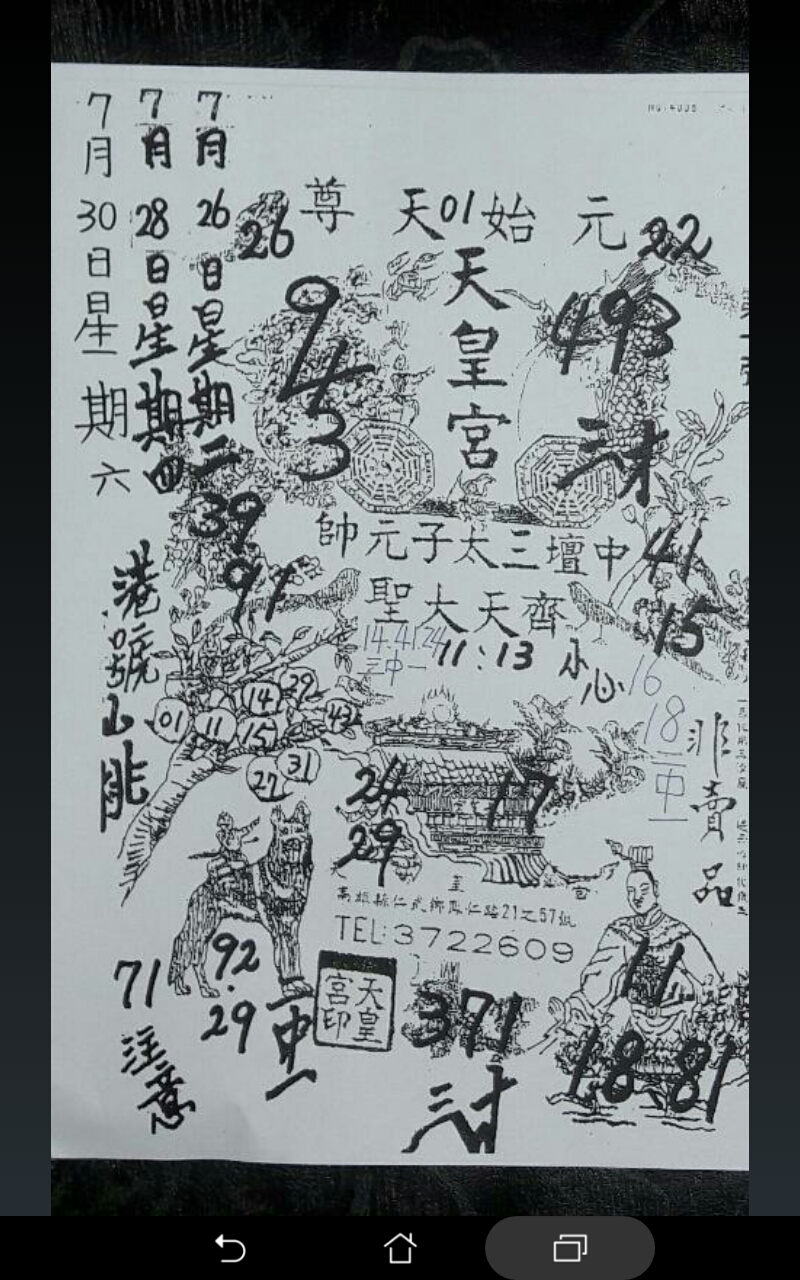 7月30日星期六
7月28日星期四
7月26日星期二
26
尊 天 01 始 元
22
天皇宮
943
493
三才
39
91
帥元子太三壇中
41
聖大天齊
15
14.41.24
三中一
11:13
小心
16
18
二中一
港號
山能
01
11
14
15
29
43
27
31
24
29
17
非賣品
天皇宮
高雄縣仁武鄉鳳仁路21之57號
TEL:3722609
92.
29
二中一
71
注意
天皇
宮印
371
三才
11
18.81